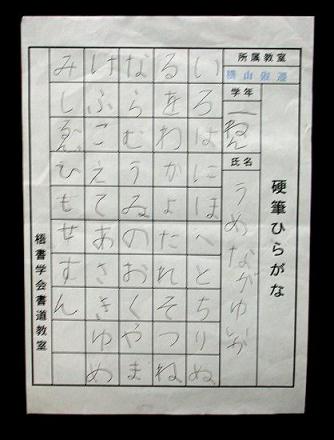 硬筆ひらがな
所属教室
学年
一ねん
氏名
うめながゆいか
いろはにほへとちりぬ
るをわかよたれそつね
ならむうゐのおくやま
けふこえてあさきゆめ
みしゑひもせすん
書学会書道教室